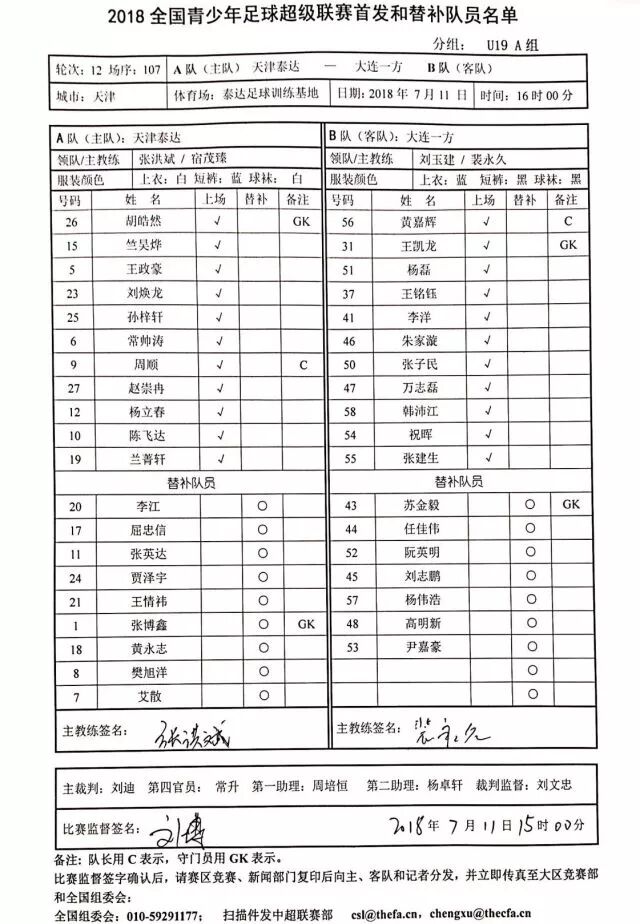 2018 全国青少年足球超级联赛首发和替补队员名单
分组： U19 A 组
轮次：12 场序：107 A 队（主队）天津泰达 — 大连一方 B 队（客队）
城市：天津 体育场：泰达足球训练基地 日期：2018 年 7 月 11 日 时间：16 时 00 分
A 队（主队）：天津泰达 B 队（客队）：大连一方
领队/主教练 张洪斌 / 宿茂臻 领队/主教练 刘玉建 / 裴永久
服装颜色 上衣：白 短裤：蓝 球袜： 白 服装颜色 上衣：蓝 短裤：黑 球袜：黑
号码 姓 名 上场 替补 备注 号码 姓 名 上场 替补 备注
26 胡皓然 √ GK 56 黄嘉辉 √ C
15 竺昊烨 √ 31 王凯龙 √ GK
5 王政豪 √ 51 杨磊 √
23 刘焕龙 √ 37 王铭钰 √
25 孙梓轩 √ 41 李洋 √
6 常帅涛 √ 46 朱家漩 √
9 周顺 √ C 50 张子民 √
27 赵崇冉 √ 47 万志磊 √
12 杨立春 √ 58 韩沛江 √
10 陈飞达 √ 54 祝晖 √
19 兰菁轩 √ 55 张建生 √
替补队员 替补队员
20 李江 ○ 43 苏金毅 ○ GK
17 屈忠信 ○ 44 任佳伟 ○
11 张英达 ○ 52 阮英明 ○
24 贾泽宇 ○ 45 刘志鹏 ○
21 王情祎 ○ 57 杨伟浩 ○
1 张博鑫 ○ GK 48 高明新 ○
18 黄永志 ○ 53 尹嘉豪 ○
8 樊旭洋 ○ ○
7 艾散 ○ ○
主教练签名： 张洪斌 主教练签名： 裴永久
主裁判：刘迪 第四官员： 常升 第一助理：周培恒 第二助理：杨卓轩 裁判监督：刘文忠
比赛监督签名： 2018 年 7 月 11 日 15 时 00 分
备注：队长用 C 表示，守门员用 GK 表示。
比赛监督签字确认后，请赛区竞赛、新闻部门复印后向主、客队和记者分发，并立即传真至大区竞赛部
和全国组委会：
全国组委会： 010-59291177； 扫描件发中超联赛部 csl@thefa.cn，chengxu@thecfa.cn